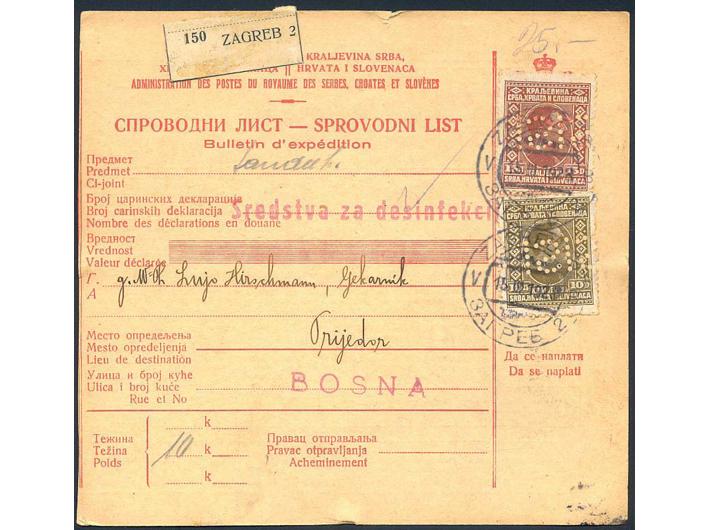 150 ZAGREB 2
25.-
KRALJEVINA SRBA,
HRVATA I SLOVENACA
ADMINISTRATION DES POSTES DU ROYAUME DES SERBES, CROATES ET SLOVÈNES
СПРОВОДНИ ЛИСТ — SPROVODNI LIST
Bulletin d'expédition
Предмет
Predmet
Ci-joint
Sanduk.
Број царинских декларација
Broj carinskih deklaracija
Nombre des déclarations en douane
Sredstva za desinfekci
Вредност
Vrednost
Valeur déclarée
Г.
A
g. Mr Ph. Lujo Hirschmann, Ljekarnik
Место опредељења
Mesto opredeljenja
Lieu de destination
Prijedor
Улица и број куће
Ulica i broj kuće
Rue et No
BOSNA
Тежина
Težina
Poids
k
10 k
k
Правац отправљања
Pravac otpravljanja
Acheminement
КРАЉЕВИНА
СРБА, ХРВАТА И СЛОВЕНАЦА
15 D
SRBA, HRVATA I SLOVENACA
КРАЉЕВИНА
СРБА, ХРВАТА И СЛОВЕНАЦА
10 D
SRBA, HRVATA I SLOVENACA
ЗАГРЕБ 2
Да се наплати
Da se naplati